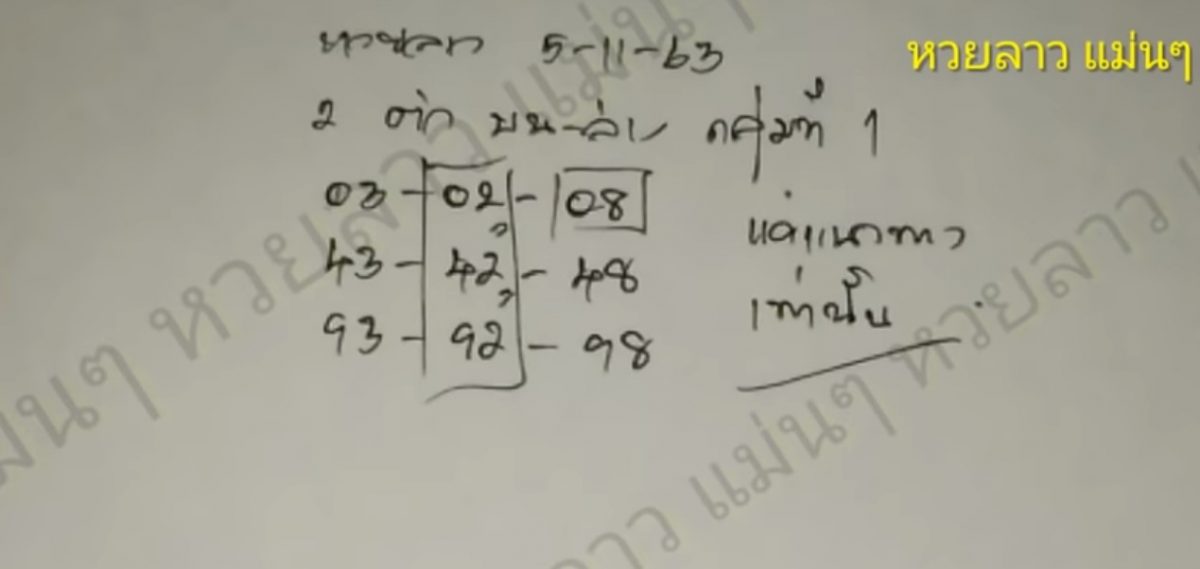 หวยลาว 5-11-63
หวยลาว แม่นๆ
2 ตัว บน-ล่าง กลุ่มที่ 1
03-02-08
43-42-48
93-92-98
แค่แนวทาง
เท่านั้น
หวยลาว แม่นๆ
หวยลาว แม่นๆ